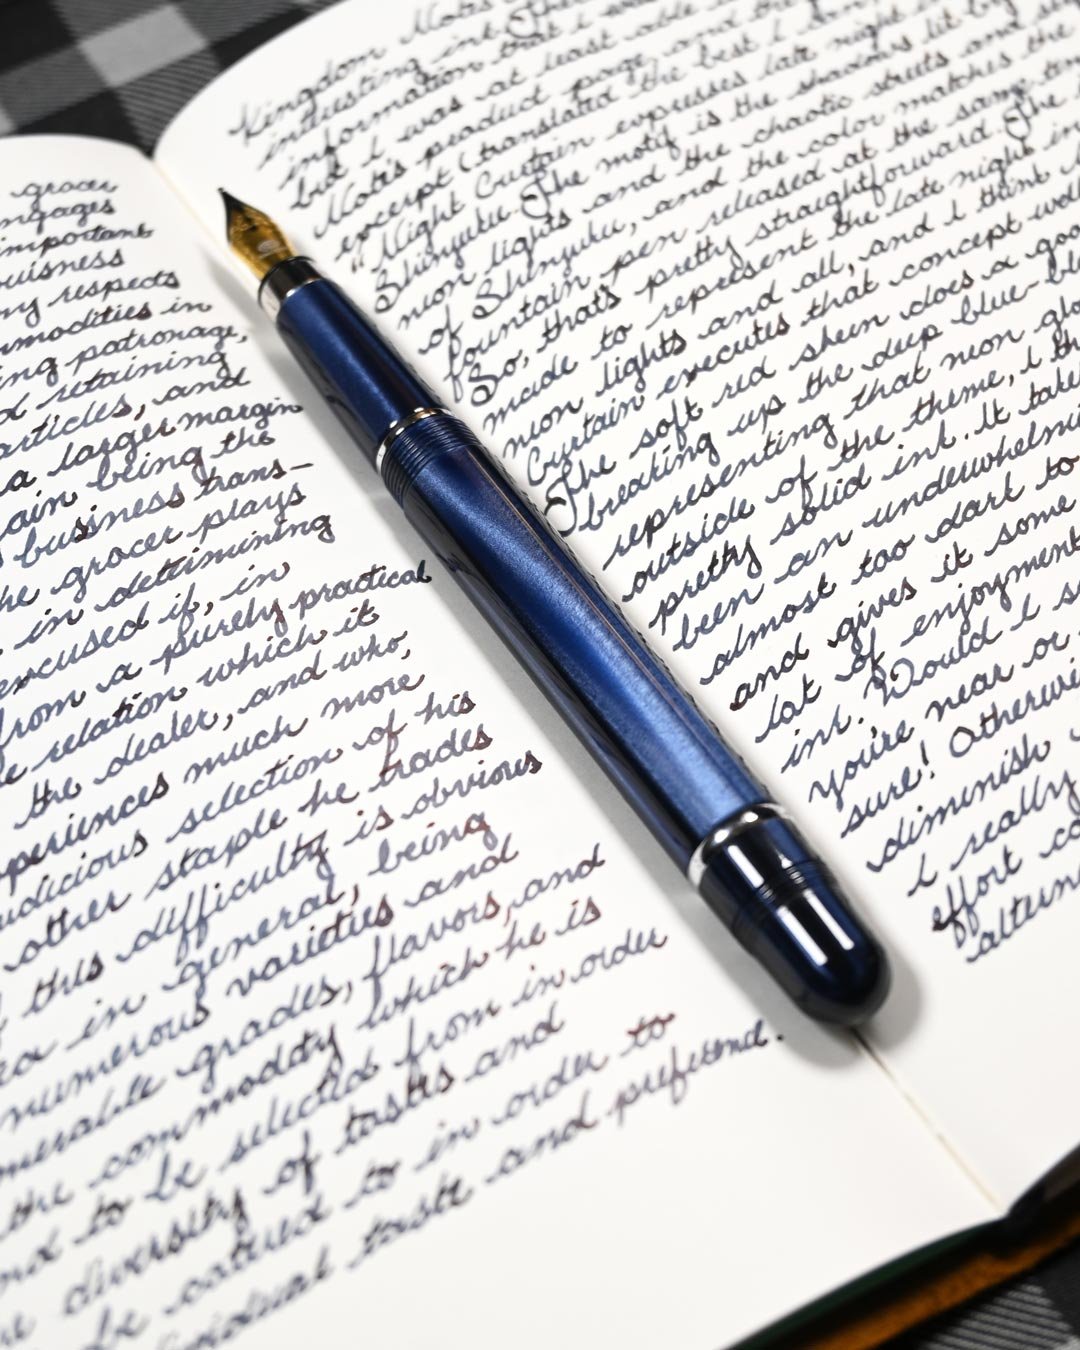 grocer
ngages
important
ouisness
ny respects
mmodities in
ing patronage,
d retaining
articles, and
a larger margin
ain being the
business trans-
he grocer plays
in determining
excused if, in
from a purely practical
e relation which it
the dealer, and who,
periences much more
udicious selection of his
other staple he trades
this difficulty is obvious
in general, being
numerous varieties and
merable grades, flavors, and
the commodity which he is
nd to be selected from in order
diversity of tastes and
be catered to in order to
dividual taste and preferend.
Kingdom Notes
interesting ink. Ther
information that I
but I was at least able
Note's product page, and the
excerpt (translated the best I
"Night Curtain expresses late night
Shinjuku. The motif is the shadows lit by
neon lights and the chaotic streets and
of Shinjuku, and the color matches the
fountain pen released at the same
So, that's pretty straightforward. The
made to represent the late night in
neon lights and all, and I think
Curtain executes that concept well
The soft red sheen does a goo
breaking up the deep blue-bl
representing that neon glo
outside of the theme, I th
pretty solid ink. It take
been an underwhelmin
almost too dark to
and gives it some
lot of enjoyment
ink. Would I
you're near or
sure! Otherwi
diminish
I really
effort co
altern